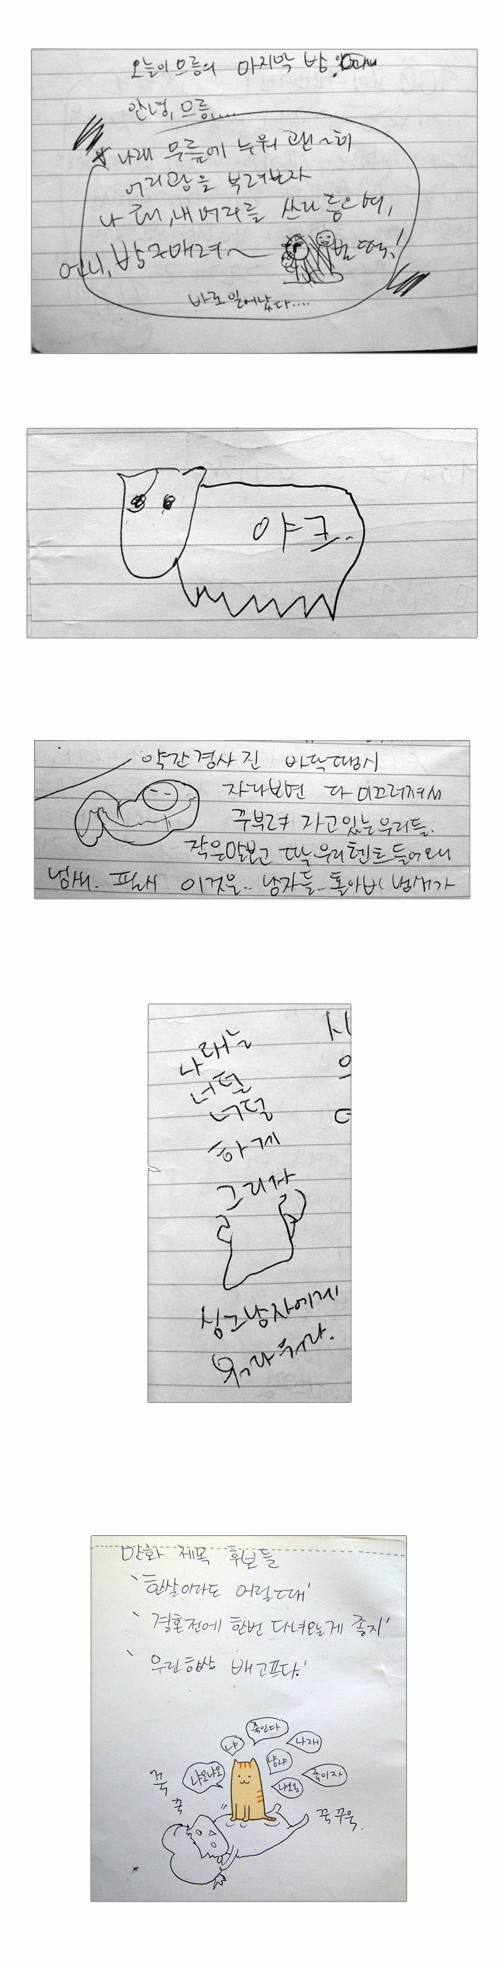 오늘이 므릉의 마지막 밤.
안녕, 므릉....
나래 무릎에 누워 괜~히
어리광을 부려보자
나래, 내 머리를 쓰다듬으며,
언니, 방구매려~ 벌떡!
바로 일어났다....
야크..
약간 경사진 바닥 때문에
자다보면 다 미끄러져서
꾸부려 자고있는 우리들.
작은말보고 딱 우리텐트 들어오니
냄새. 필새 이것은.. 남자들.. 홀아비 냄새가
나래는
너덜
너덜
하게
그리자
싱그남자에게
만화 제목 후보들
'한살이라도 어릴때'
'결혼전에 한번 다녀오는게 좋지'
'우린항상 배고프다.'
죽인다
냐
나래
냐오냐오
냥냐
냐오옹
죽이자
꾹
꾹
꾹 꾸욱.